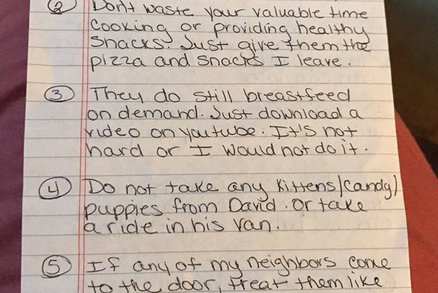 ② Don't waste your valuable time
cooking or providing healthy
snacks. Just give them the
pizza and snacks I leave.
③ They do still breastfeed
on demand. Just download a
video on youtube. It's not
hard or I would not do it.
④ Do not take any kittens/(candy)
puppies from David. Or take
a ride in his van.
⑤ If any of my neighbors come
to the door, treat them like